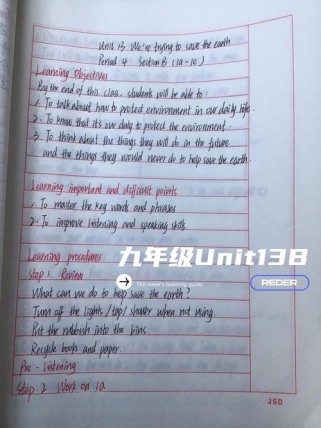 Unit 13 We're trying to save the earth
Period 4 Section B (1a-1e)
Learning Objectives
By the end of this class, students will be able to:
1. To talk about how to protect environment in our daily life.
2. To know that it's our duty to protect the environment.
3. To think about the things they will do in the future
and the things they would never do to help save the earth.
Learning important and difficult points
1. To master the key words and phrases
2. To improve listening and speaking skills.
九年级Unit13B
Learning procedures
Step 1 Review
This week's teaching guide
REDER
What can we do to help save the earth?
Turn off the lights / tap / shower when not using.
Put the rubbish into the bins.
Recycle books and paper.
Pre - listening
Step 2 Work on 1a
JSD